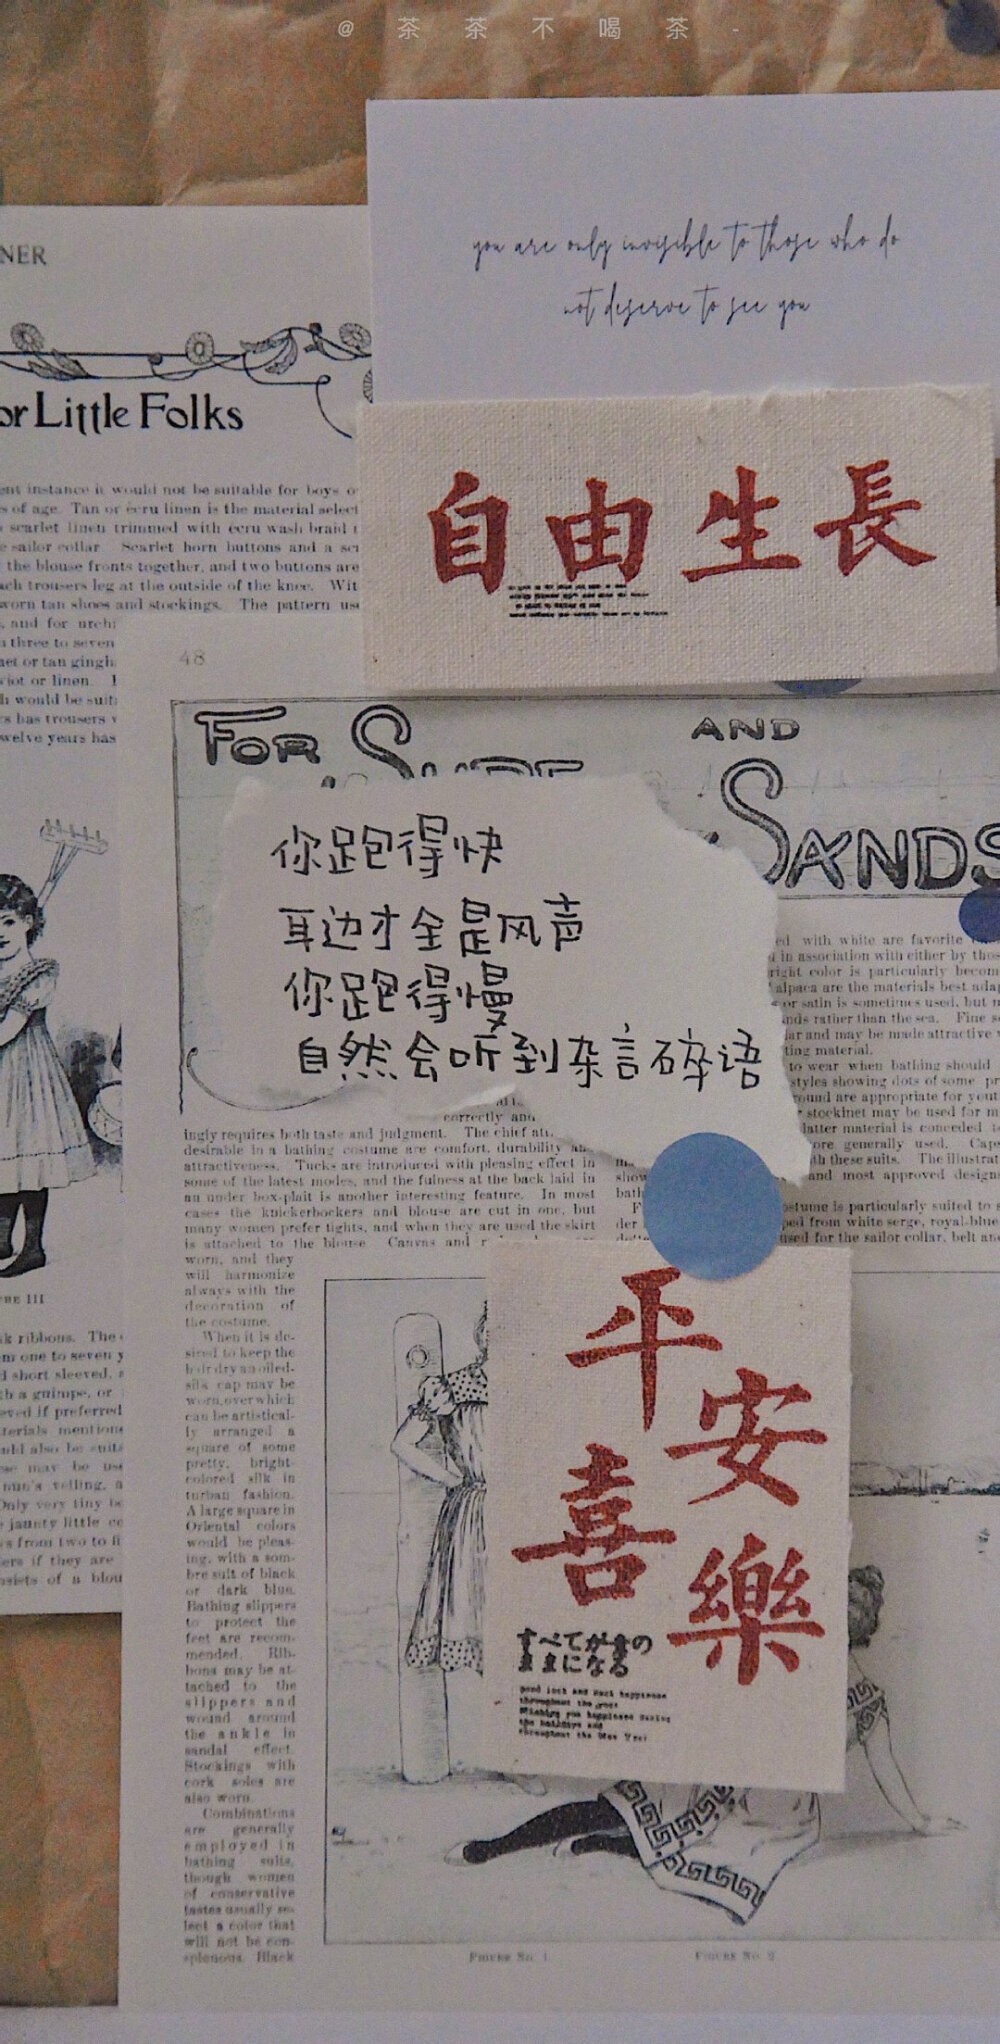 @茶茶不喝茶-
you are only invisible to those who do
not deserve to see you
NER
or Little Folks
自由生長
ent instance it would not be suitable for boys o
s of age. Tan or ecru linen is the material select
scarlet linen trimmed with ecru wash braid
sailor collar. Scarlet horn buttons and a
the blouse fronts together, and two buttons are
ach trousers leg at the outside of the knee. Wit
worn tan shoes and stockings. The pattern
and for
three to seven
or tan
or linen.
would be
has trousers
welve years has
48
FOR
AND
SANDS
你跑得快
耳边才全是风声
你跑得慢
自然会听到杂言碎语
with white are favorite
in association with either by
right color is particularly
alpaca are the materials best
or satin is sometimes used, but
rather than the sea. Fine
and may be made attractive
material.
to wear when bathing should
styles showing dots of some
are appropriate for
stockinet may be used for
latter material is conceded
generally used.
these suits. The
and most approved
is particularly suited to
from white serge, royal-blue
used for the sailor collar, belt
correctly and
ingly requires both taste and judgment. The chief
desirable in a bathing costume are comfort, durability
attractiveness. Tucks are introduced with pleasing effect in
some of the latest modes, and the fulness at the back laid in
an under box-plait is another interesting feature. In most
cases the knickerbockers and blouse are cut in one, but
many women prefer tights, and when they are used the skirt
is attached to the blouse Canvas and
worn, and they
will harmonize
always with the
decoration of
the costume.
When it is de-
sired to keep the
hair dry an oiled-
silk cap may be
worn, over which
can be artistical-
ly arranged a
square of some
pretty, bright-
colored silk in
turban fashion.
A large square in
Oriental colors
would be pleas-
ing, with a som-
bre suit of black
or dark blue.
Bathing slippers
to protect the
feet are recom-
mended. Rib-
bons may be at-
tached to the
slippers and
wound around
the ankle in
sandal effect.
Stockings with
cork soles are
also worn.
Combinations
are generally
employed in
bathing suits,
though women
of conservative
tastes usually se-
lect a color that
will not be con-
spicuous. Black
III
ribbons. The
one to seven
short sleeved,
a guimpe, or
if preferred
mentione
also be
may be
veiling,
Only very tiny
jaunty little
from two to
if they are
of a
平安
喜樂
すべてが書の
書になる
good luck and much happiness
throughout the year
Wishing you happiness during
the holidays and
throughout the New Year
FIGURE No. 1
FIGURE No. 2